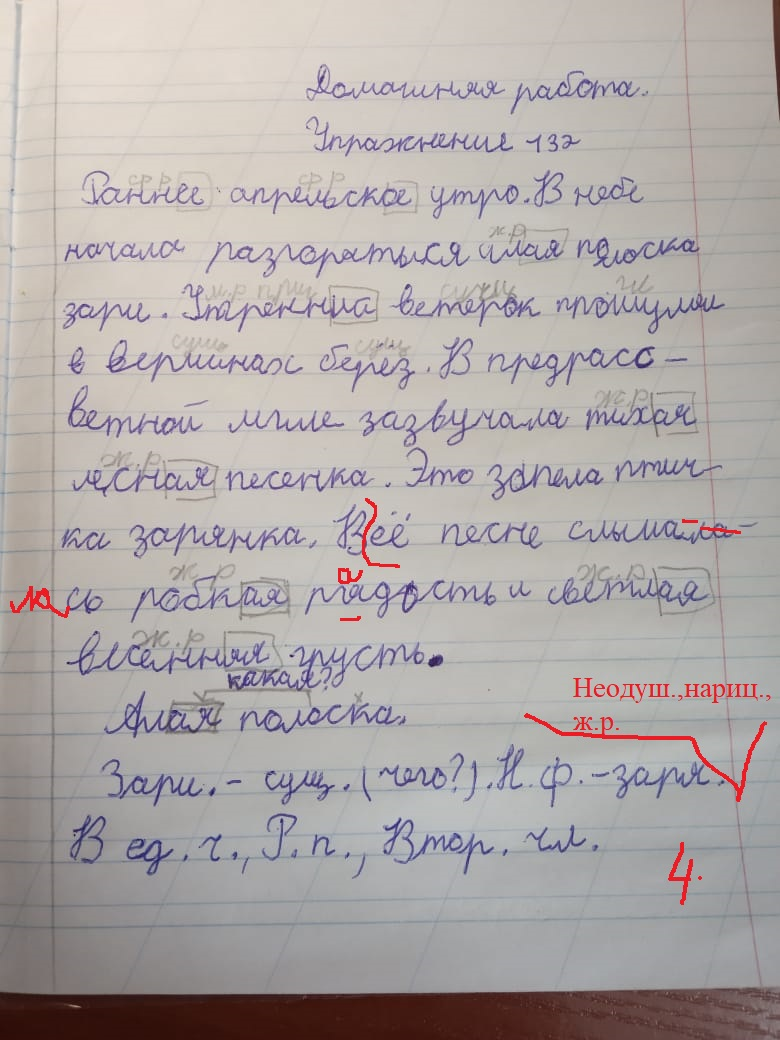 Домашняя работа.
Упражнение 132
ср р ср р
Раннее апрельское утро. В небе
ж.р
начала разгораться алая полоска
м.р прил сущ
зари. Утренниа ветерок прошумел
сущ сущ
в вершинах берез. В предрасс-
ж.р
ветной мгле зазвучала тихая
ж.р
лесная песенка. Это запела птич-
ка зарянка. В её песне слыша-ла-
ж.р а ж.р
ла сь робкая ргадость и светлая
ж.р
весенняя грусть.
какая?
Неодуш.,нариц.,
ж.р.
х
Алая полоска.
Зари. - сущ. (чего?). Н. ф. - заря.
В ед. ч., Р. п., Втор. чл.
4.